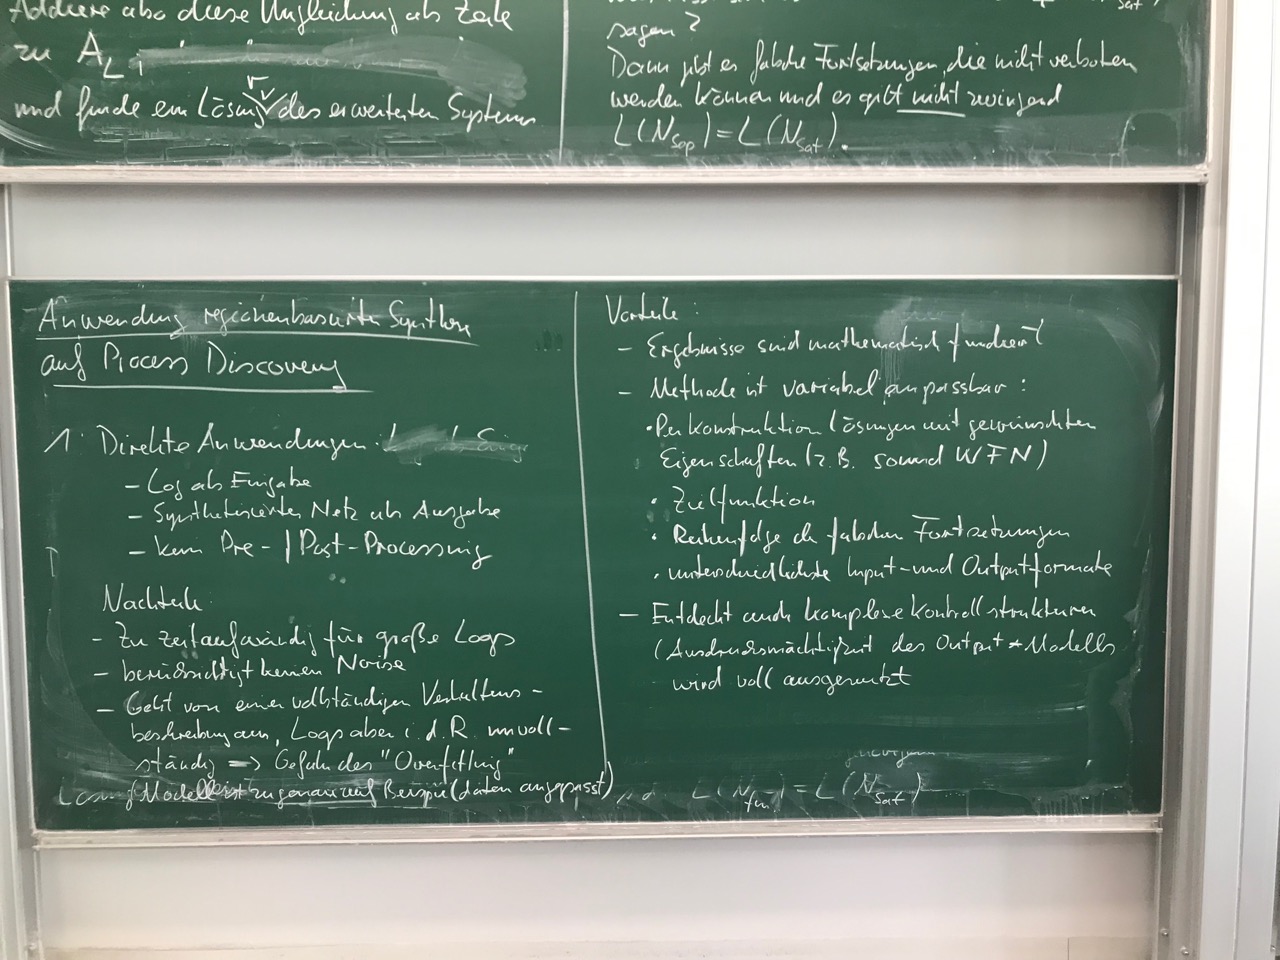 Addiere also diese Ungleichung als Zeile
zu A_L,
und finde ein Lösung des erweiterten Systems
sagen?
Dann gibt es falsche Fortsetzungen, die nicht verboten
werden können und es gibt nicht zwingend
L(N_sep) = L(N_sat).
Anwendung regionenbasierter Synthese
auf Process Discovery
1. Direkte Anwendungen:
- Log als Eingabe
- Synthetisiertes Netz als Ausgabe
- Kein Pre-/Post-Processing
Nachteile:
- Zu zeitaufwändig für große Logs
- berücksichtigt keinen Noise
- Geht von einer vollständigen Verhaltens-
beschreibung aus, Logs aber i.d.R. unvoll-
ständig => Gefahr des "Overfitting"
(Modell ist zu genau auf Beispieldaten angepasst)
Vorteile:
- Ergebnisse sind mathematisch fundiert
- Methode ist variabel anpassbar:
• Per Konstruktion Lösungen mit gewünschten
Eigenschaften (z.B. sound WFN)
• Zielfunktion
• Reihenfolge der falschen Fortsetzungen
• unterschiedlichste Input- und Outputformate
- Entdeckt auch komplexe Kontrollstrukturen
(Ausdrucksmächtigkeit des Output-Modells
wird voll ausgenutzt
L(N_fin) = L(N_sat)